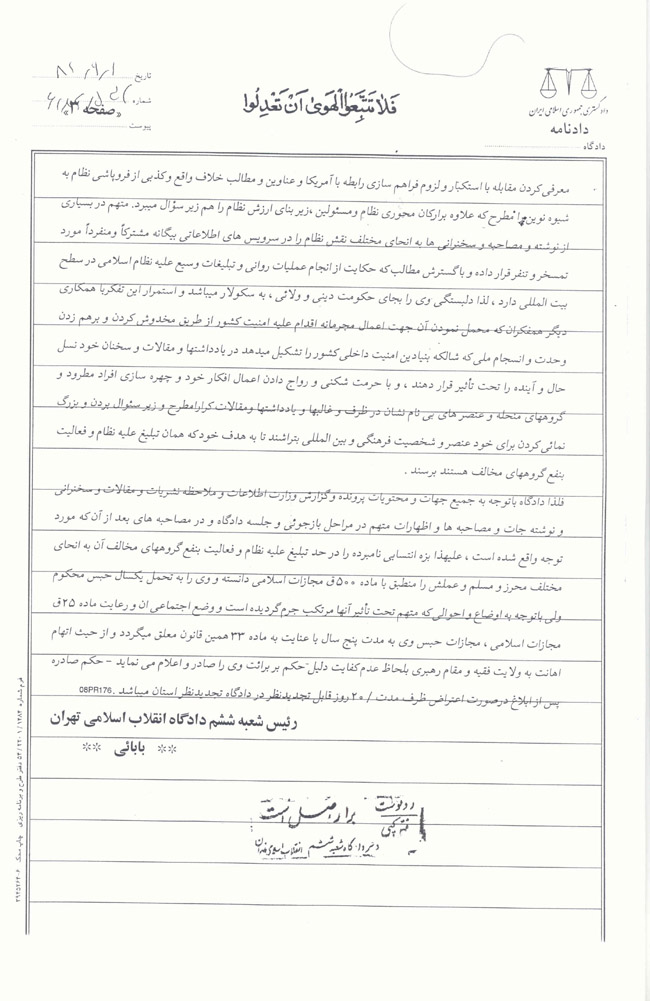 فلا تتبعوا الهوی ان تعدلوا
دادگستری جمهوری اسلامی ایران
دادنامه
دادگاه
تاریخ
شماره
«صفحه ۳»
پیوست
معرفی کردن مقابله با استکبار و لزوم فراهم سازی رابطه با آمریکا و عناوین و مطالب خلاف واقع و کذبی از فروپاشی نظام به
شیوه نوین را مطرح که علاوه برارکان محوری نظام ومسئولین ،زیر بنای ارزش نظام را هم زیر سؤال میبرد. متهم در بسیاری
از نوشته و مصاحبه و سخنرانی ها به انحای مختلف نقش نظام را در سرویس های اطلاعاتی بیگانه مشترکاً ومنفرداً مورد
تمسخر و تنفر قرار داده و باگسترش مطالب که حکایت از انجام عملیات روانی و تبلیغات وسیع علیه نظام اسلامی در سطح
بیت المللی دارد ، لذا دلبستگی وی را بجای حکومت دینی و ولائی ، به سکولار میباشد و استمرار این تفکربا همکاری
دیگر همفکران که محمل نمودن آن جهت اعمال مجرمانه اقدام علیه امنیت کشور از طریق مخدوش کردن و برهم زدن
وحدت و انسجام ملی که شالکه بنیادین امنیت داخلی کشور را تشکیل میدهد در یادداشتها و مقالات و سخنان خود نسل
حال و آینده را تحت تأثیر قرار دهند ، و با حرمت شکنی و رواج دادن اعمال افکار خود و چهره سازی افراد مطرود و
گروههای منحله و عنصر های بی نام نشان در ظرف و غالبها و یادداشتها ومقالات کرارا مطرح و زیر سئوال بردن و بزرگ
نمائی کردن برای خود عنصر و شخصیت فرهنگی و بین المللی بتراشند تا به هدف خود که همان تبلیغ علیه نظام و فعالیت
بنفع گروههای مخالف هستند برسند .
فلذا دادگاه باتوجه به جمیع جهات و محتویات پرونده وگزارش وزارت اطلاعات و ملاحظه نشریات و مقالات و سخنرانی
و نوشته جات و مصاحبه ها و اظهارات متهم در مراحل بازجوئی و جلسه دادگاه و در مصاحبه های بعد از آن که مورد
توجه واقع شده است ، علیهذا بزه انتسابی نامبرده را در حد تبلیغ علیه نظام و فعالیت بنفع گروههای مخالف آن به انحای
مختلف محرز و مسلم و عملش را منطبق با ماده ۵۰۰ ق مجازات اسلامی دانسته و وی را به تحمل یکسال حبس محکوم
ولی باتوجه به اوضاع و احوالی که متهم تحت تأثیر آنها مرتکب جرم گردیده است و وضع اجتماعی ان و رعایت ماده ۲۵ ق
مجازات اسلامی ، مجازات حبس وی به مدت پنج سال با عنایت به ماده ۳۳ همین قانون معلق میگردد و از حیث اتهام
اهانت به ولایت فقیه و مقام رهبری بلحاظ عدم کفایت دلیل حکم بر برائت وی را صادر و اعلام می نماید - حکم صادره
پس از ابلاغ درصورت اعتراض ظرف مدت / ۲۰ روز قابل تجدیدنظر در دادگاه تجدیدنظر استان میباشد . 08PR176
رئیس شعبه ششم دادگاه انقلاب اسلامی تهران
** بابائی **
رونوشت برابر اصل است
دفتر دادگاه شعبه ششم انقلاب اسلامی تهران